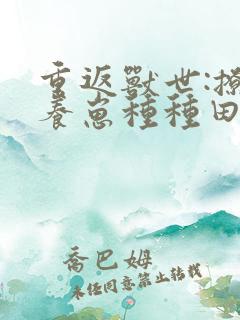 重返獸世:撩
養崽種種田
喬巴姆
未经同意禁止转载